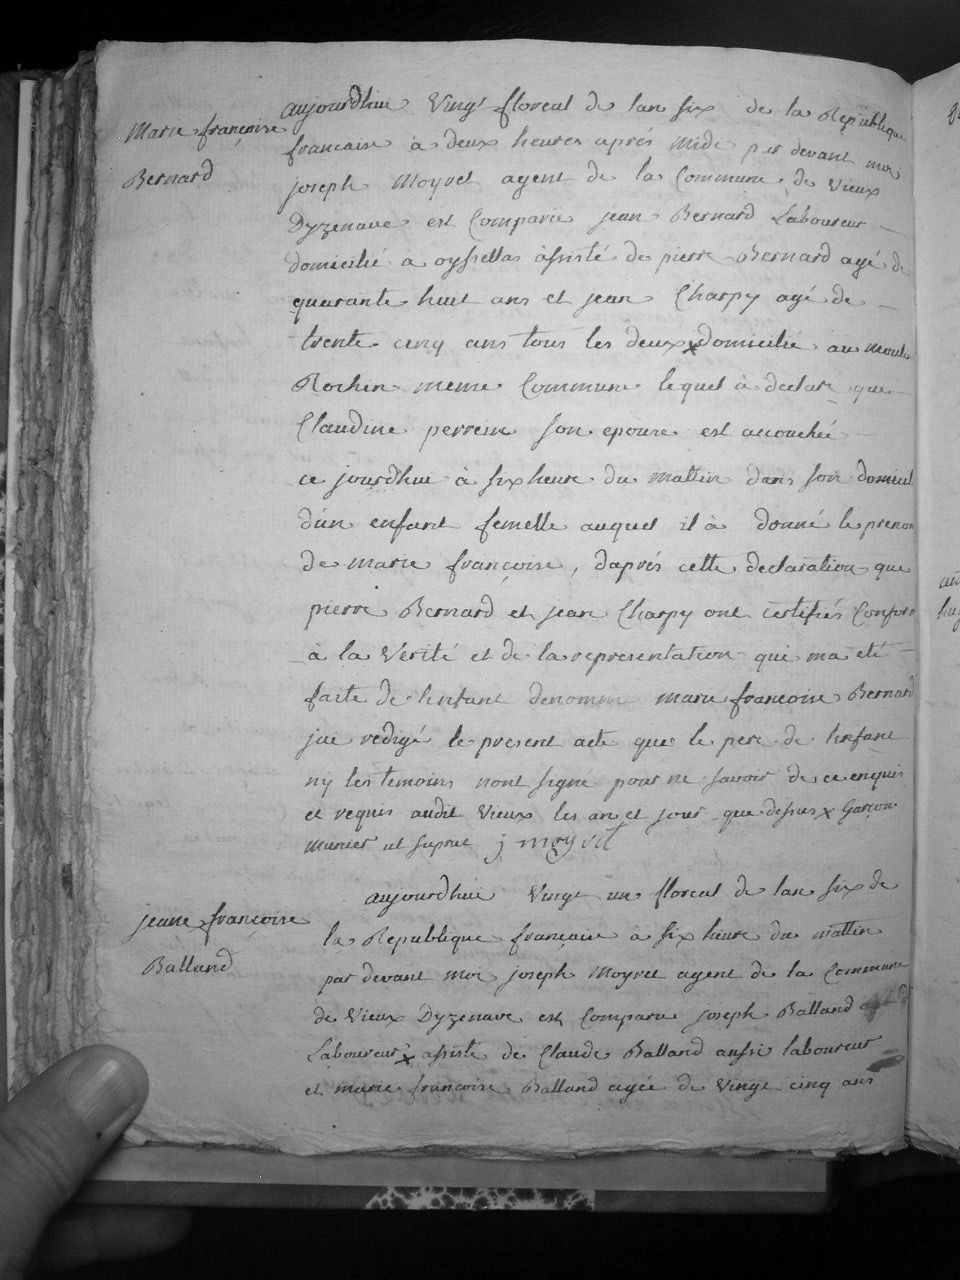 Marie françoise
Bernard
aujourdhui Vingt floreal de lan six de la Republique
francaise à deux heures après midi par devant moi
joseph Moyret agent de la Commune de Vieux
Dyzenave est Comparu jean Bernard Laboureur
domicilié à oyssellas assisté de pierre Bernard agé de
quarante huit ans et jean Charpy agé de
trente cinq ans tous les deux x domicilié au Moulin
Rochin meme Commune lequel à declaré que
Claudine perrein son epouse est accouchée
ce jourdhui à six heure du mattin dans son domicil
dun enfant femelle auquel il à donné le prenom
de marie françoise, daprés cette declaration que
pierre Bernard et jean Charpy ont certifiés Conforme
à la Verité et de la representation qui ma eté
faite de lenfant denommé marie françoise Bernard
jai redigé le present acte que le pere de lenfant
ny les temoins nont signé pour ne savoir de ce enquis
et requis audit Vieux les an et jour que dessus x Garçon
munier ut supra j moyret
jeane françoise
Balland
aujourdhui Vingt un floreal de lan six de
la Republique française à six heure du mattin
par devant moi joseph Moyret agent de la Commune
de Vieux Dyzenave est Comparu joseph Balland
Laboureur x assisté de Claude Balland aussi laboureur
et marie françoise Balland agée de Vingt cinq ans